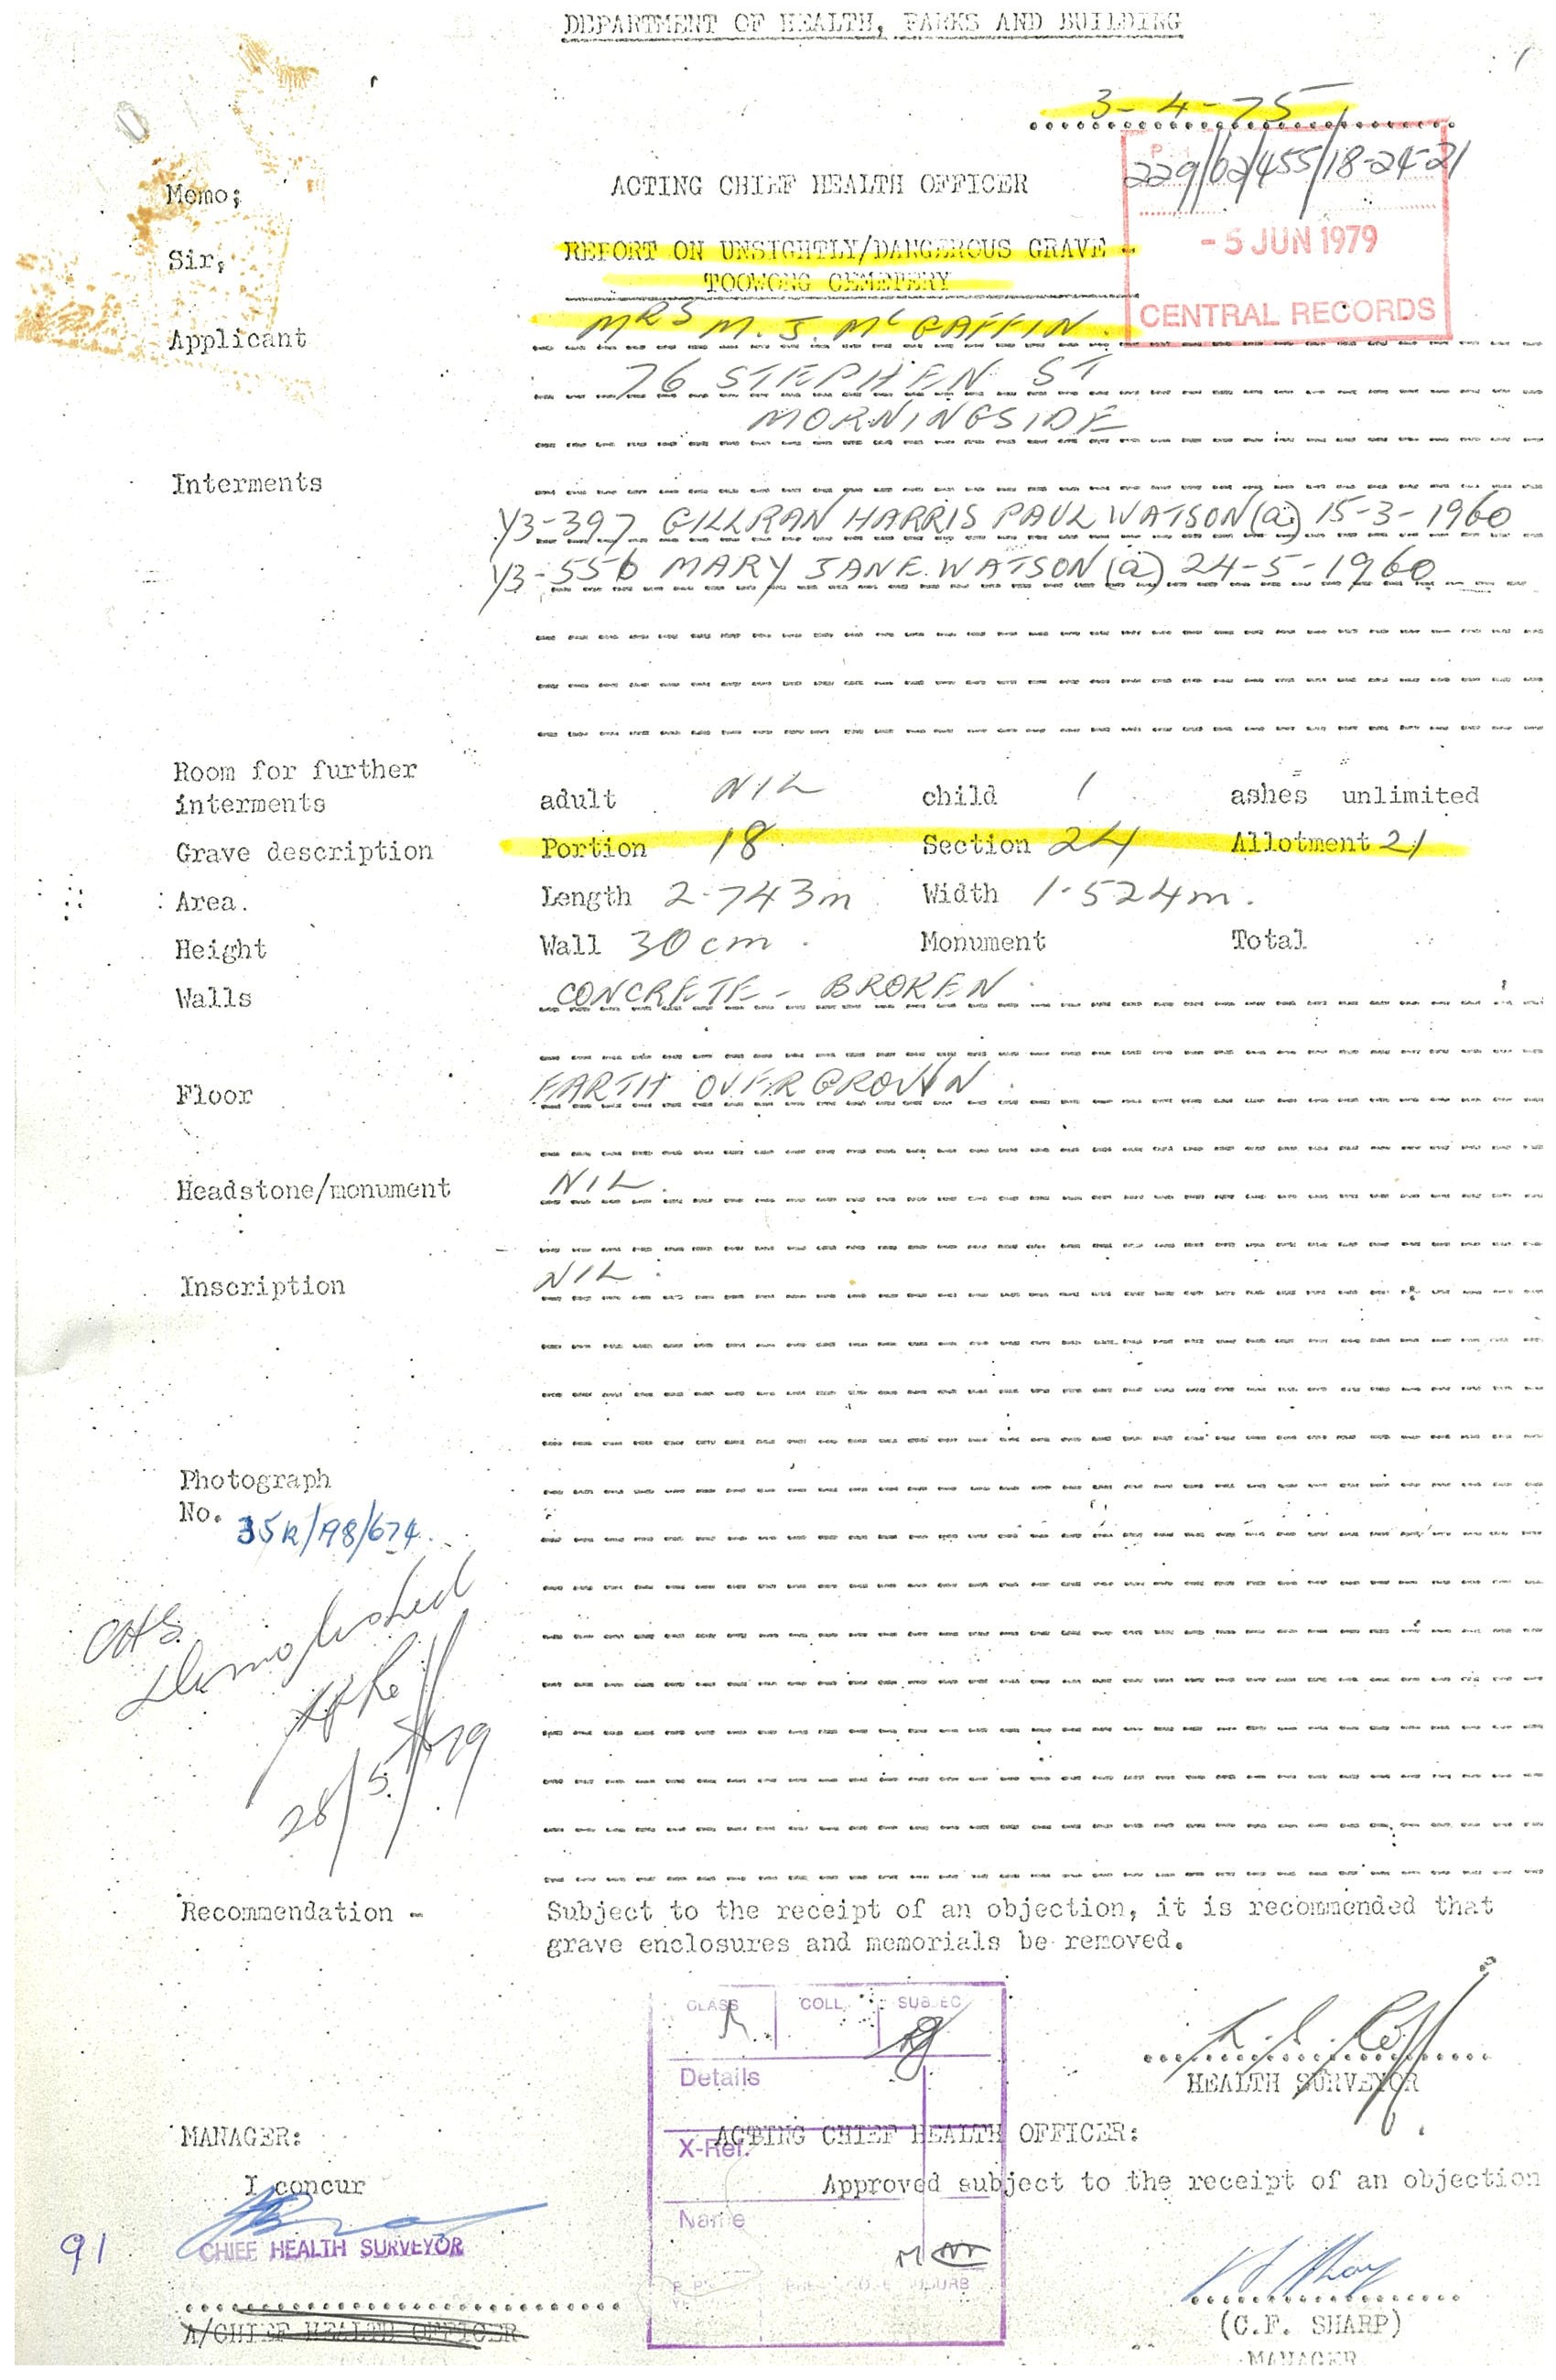 DEPARTMENT OF HEALTH, PARKS AND BUILDING
3-4-75
229/02/455/18-24-21
Memo;
ACTING CHIEF HEALTH OFFICER
- 5 JUN 1979
Sir;
REPORT ON UNSIGHTLY/DANGEROUS GRAVE -
TOOWONG CEMETERY
CENTRAL RECORDS
Applicant MRS M. J. McGAFFIN.
76 STEPHEN ST
MORNINGSIDE
Interments
Y3-397 GILLRAN HARRIS PAUL WATSON (a) 15-3-1960
Y3-556 MARY JANE WATSON (a) 24-5-1960
Room for further
interments adult NIL child 1 ashes unlimited
Grave description Portion 18 Section 24 Allotment 21
Area. Length 2.743m Width 1.524m.
Height Wall 30cm. Monument Total
Walls CONCRETE - BROKEN
Floor EARTH OVERGROWN.
Headstone/monument NIL.
Inscription NIL.
Photograph
No. 35R/A8/674
CHS
Demolished
28/5/79
Recommendation - Subject to the receipt of an objection, it is recommended that
grave enclosures and memorials be removed.
CLASS COLL. SUBJEC
Details
HEALTH SURVEYOR
MANAGER: ACTING CHIEF HEALTH OFFICER:
X-Ref.
I concur Approved subject to the receipt of an objection
Name
91 CHIEF HEALTH SURVEYOR
A/CHIEF HEALTH OFFICER
(C.F. SHARP)
MANAGER